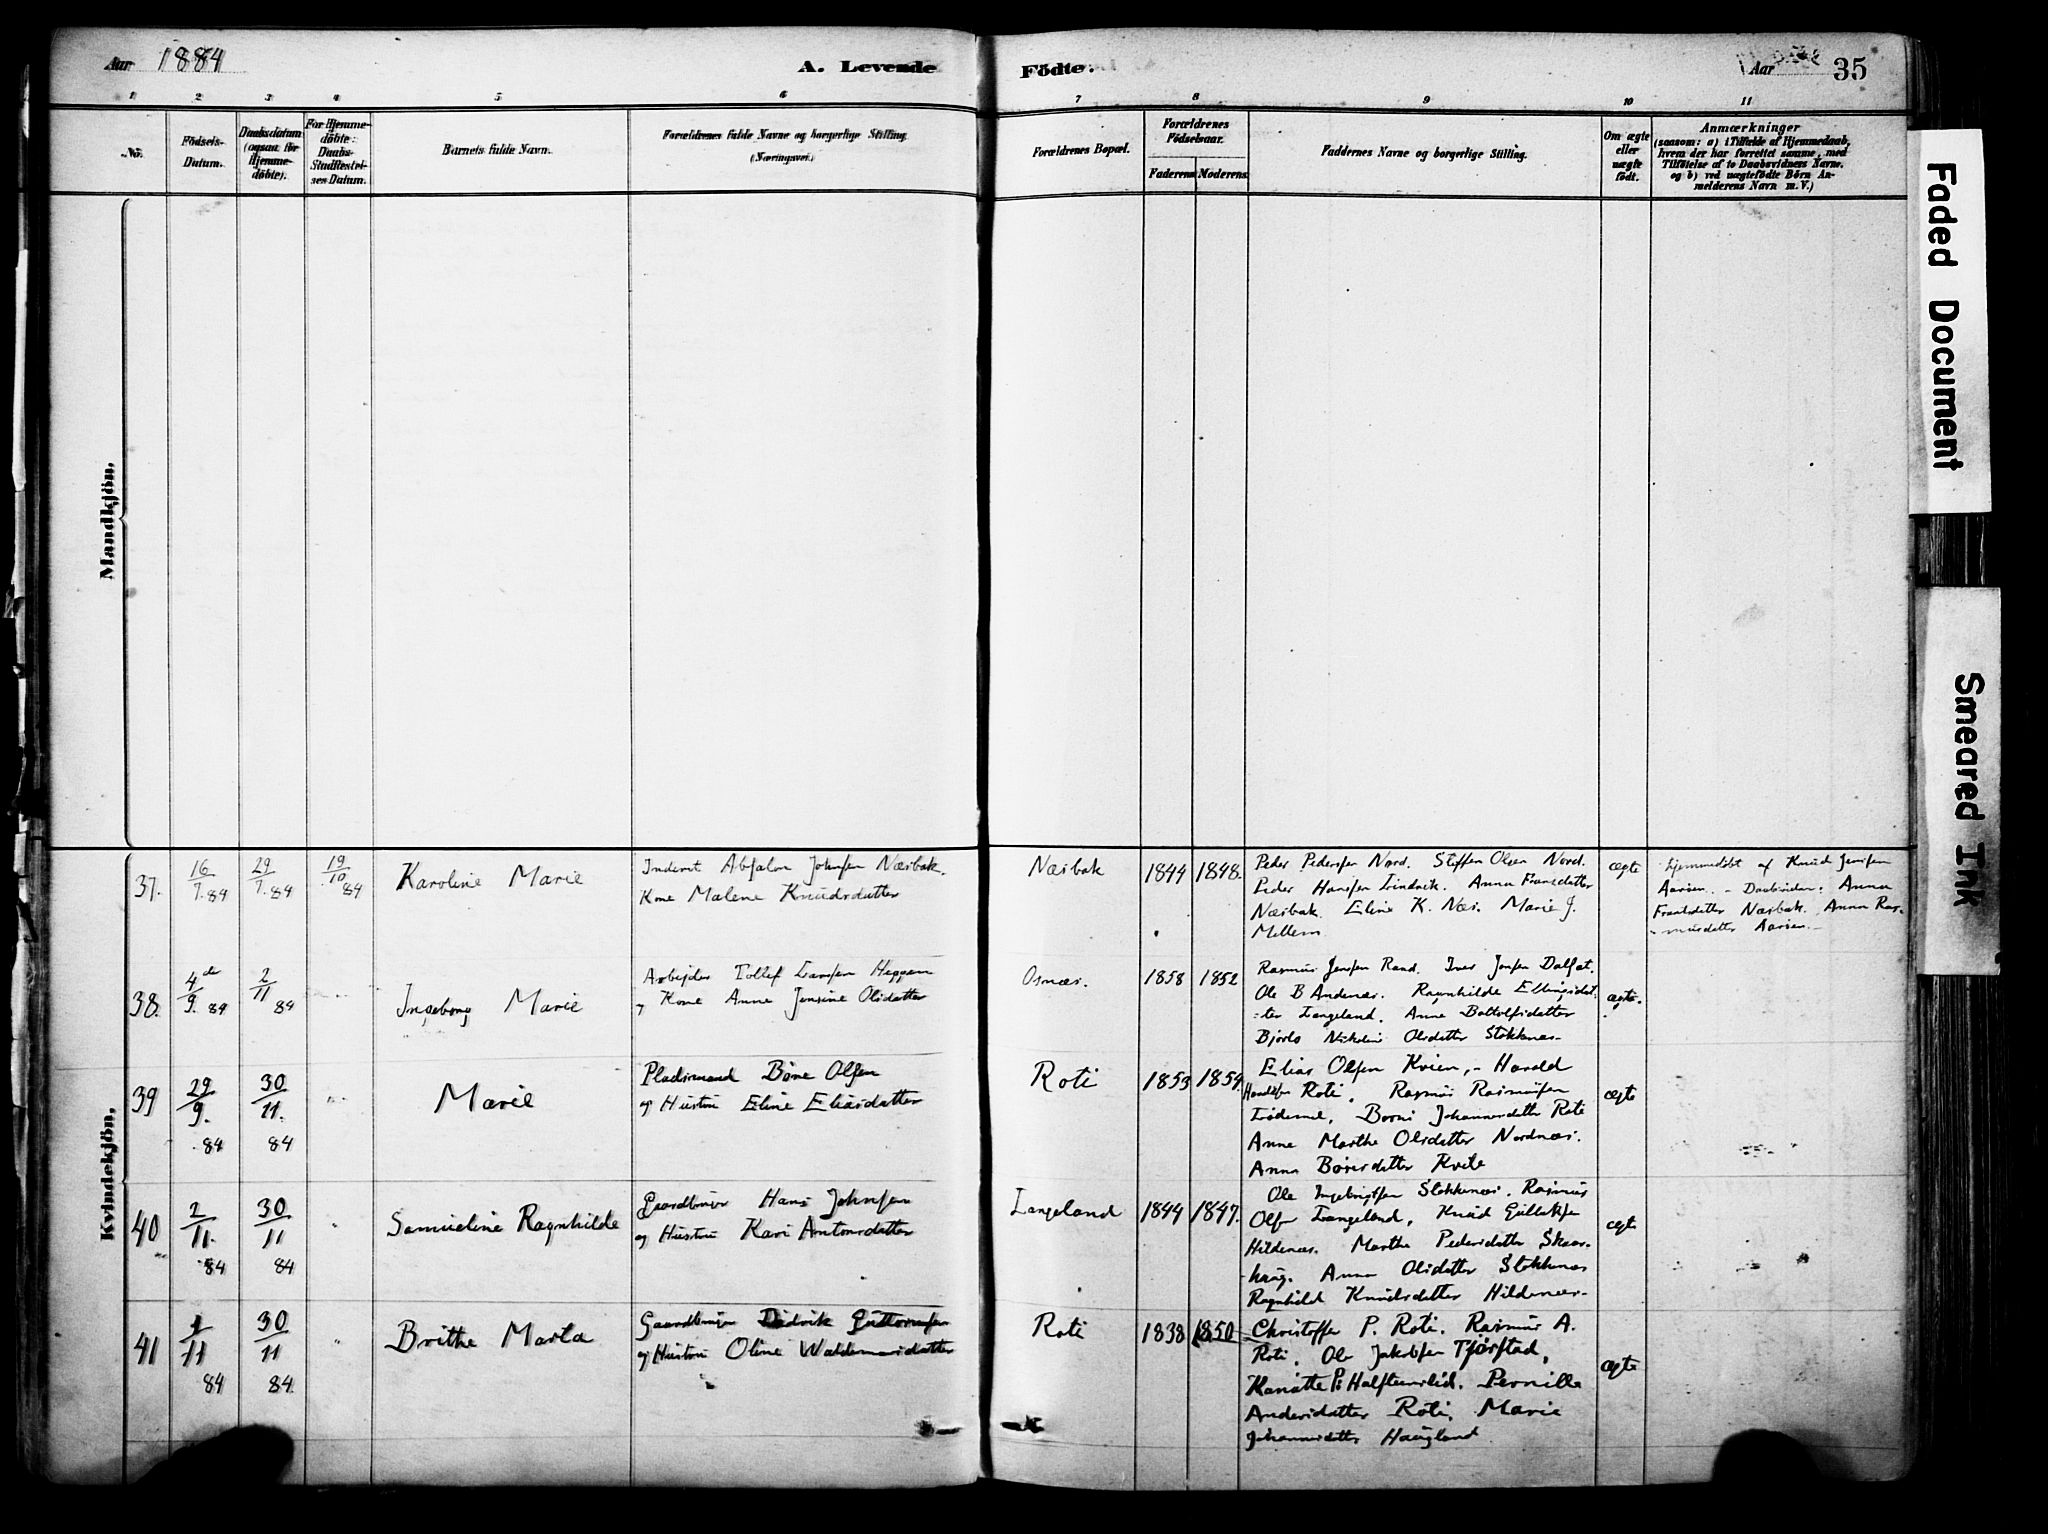 Aar 1884
A. Levende
Födte.
Aar
35
1 2 3 4 5 6 7 8 9 10 11
No.
Födsels-
Datum.
Daabsdatum
(ogsaa for
Hjemme-
döbte).
For Hjemme-
döbte:
Daabs-
Stadfæstel-
ses Datum.
Barnets fulde Navn.
Forældrenes fulde Navne og borgerlige Stilling.
(Næringsvei.)
Forældrenes Bopæl.
Forældrenes
Födselsaar.
Faderens Moderens
Faddernes Navne og borgerlige Stilling.
Om ægte
eller
uægte
födt.
Anmærkninger
(saasom: a) i Tilfælde af Hjemmedaab,
hvem der har forrettet samme, med
Tilföielse af to Daabsvidners Navne.
og b) ved uægtefödte Börn An-
melderens Navn m. V.)
Mandkjön.
Kvindekjön.
37.
16/7.84
29/7.84
19/10 84
Karoline Marie
Inderst Absalon Johnsen Næsbak.
Kone Malene Knudsdatter
Næsbak
1844
1848.
Peder Pedersen Nord. Steffen Olsen Nord.
Peder Hansen Indrik. Anna Fransdatter
Næsbak. Eline K. Næs. Marie J.
Mellem
ægte
Hjemmedöbt af Knud Jensen
Aarsen. - Daabsvidner: Anna
Frantsdatter Næsbak. Anna Ras-
musdatter Aarsen.
38.
4de/9. 84
2/11 84
Ingeborg Marie
Arbejder Tollef Larsen Heggen
og Kone Anne Jensine Olsdatter
Osnæs.
1858
1852
Rasmus Jensen Rand. Iver Jonsen Dalsæt.
Ole B Andenæs. Ragnhilde Ellingsdat-
ter Langeland. Anne Bottolfsdatter
Bjorlo Nikoline Olsdatter Stokkenæs.
ægte.
39
29/9. 84
30/11. 84
Marie
Pladsmand Böre Olsen
og Hustru Eline Eliasdatter
Roti
1853
1854.
Elias Olsen Kvien, - Harald
Haraldsen Roti, Rasmus Rasmusen
Indreme, Borni Johannesdatter Roti
Anne Marthe Olsdatter Nordnæs.
Anna Böresdatter Kvile
ægte
40
2/11. 84
30/11 84
Samueline Ragnhilde
Gaardbruger Hans Johnsen
og Hustru Kari Antonsdatter
Langeland
1844
1847.
Ole Ingebrigtsen Stokkenæs. Rasmus
Olsen Langeland, Knud Gulleksen
Hildenæs. Marthe Pedersdatter Skaar-
haug. Anna Olsdatter Stokkenæs
Ragnhild Knudsdatter Hildenæs.
ægte
41
1/11 84
30/11 84.
Brithe Marta
Gaardbruger Didrik Guttormsen
og Hustru Oline Waldemarsdatter
Roti
1838
1850
Christoffer P. Roti. Rasmus A.
Roti. Ole Jakobsen Tjörstad,
Kanutte P. Halftenslid. Pernille
Andersdatter Roti. Marie
Johannesdatter Haugland
ægte
Faded Document
Smeared Ink